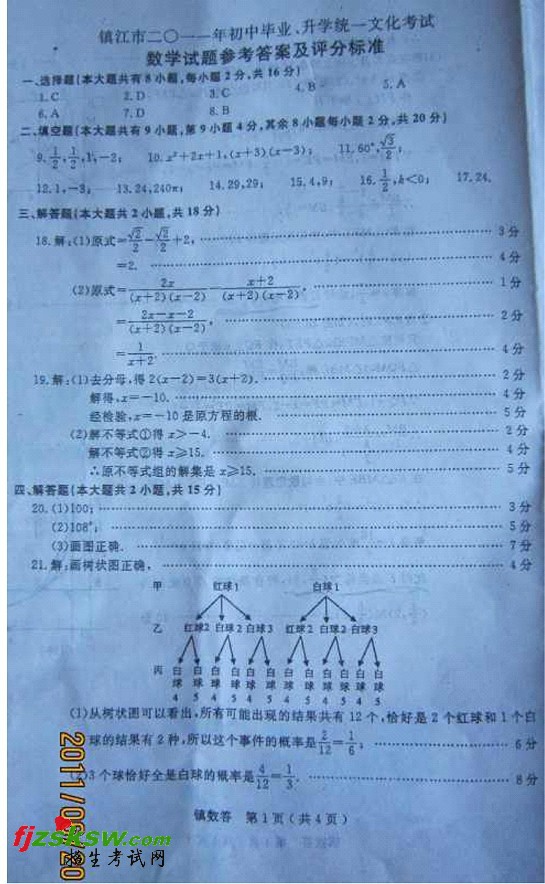 镇江市二〇一一年初中毕业、升学统一文化考试
数学试题参考答案及评分标准
一、选择题(本大题共有8小题,每小题2分,共16分)
1.C 2.D 3.C 4.B 5.A
6.A 7.D 8.B
二、填空题(本大题共有9小题,第9小题4分,其余8小题每小题2分,共20分)
9.1/2,1/2,1,-2; 10.x²+2x+1,(x+3)(x-3); 11.60°,√3/2;
12.1,-3; 13.24,240π; 14.29,29; 15.4,9; 16.1/2,k<0; 17.24.
三、解答题(本大题共2小题,共18分)
18.解:(1)原式=√2/2-√2/2+2, …… 3分
=2. …… 4分
(2)原式=2x/(x+2)(x-2)-x+2/(x+2)(x-2), …… 1分
=2x-x-2/(x+2)(x-2), …… 2分
=1/x+2. …… 4分
19.解:(1)去分母,得2(x-2)=3(x+2). …… 2分
解得,x=-10. …… 4分
经检验,x=-10是原方程的根. …… 5分
(2)解不等式①得x>-4. …… 2分
解不等式②得x≥15. …… 4分
∴原不等式组的解集是x≥15. …… 5分
四、解答题(本大题共2小题,共15分)
20.(1)100; …… 3分
(2)108°; …… 5分
(3)画图正确. …… 7分
21.解:画树状图正确, …… 4分
甲 红球1 白球1
乙 红球2 白球2 白球3 红球2 白球2 白球3
丙 白球4 白球5 白球4 白球5 白球4 白球5 白球4 白球5 白球4 白球5 白球4 白球5
(1)从树状图可以看出,所有可能出现的结果共有12个,恰好是2个红球和1个白
球的结果有2种,所以这个事件的概率是2/12=1/6; …… 6分
(2)3个球恰好全是白球的概率是4/12=1/3. …… 8分
镇数答 第1页(共4页)
fjzsksw.com
招生考试网